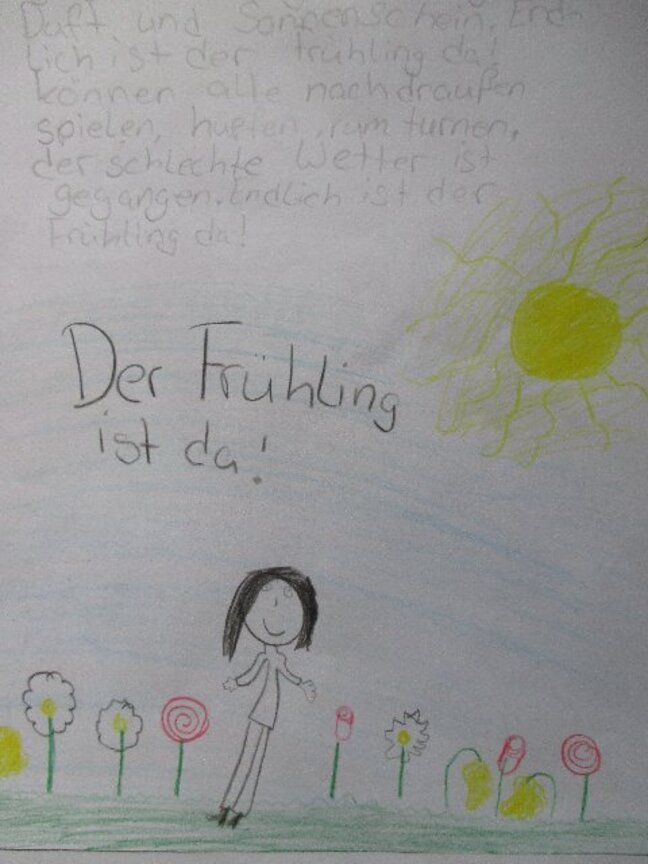 Duft und Sonnenschein. End-
lich ist der frühling da!
können alle nach draußen
spielen, hüpfen, rum turnen,
der schlechte Wetter ist
gegangen. Endlich ist der
Frühling da!
Der Frühling
ist da!